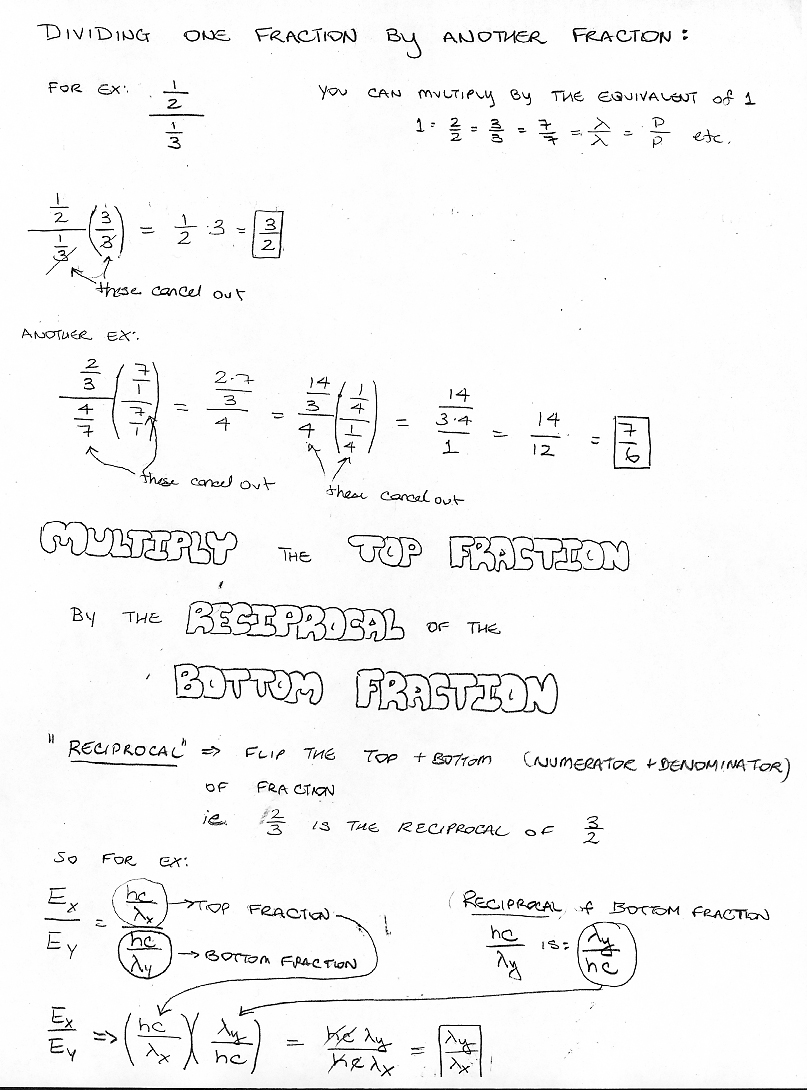 DIVIDING ONE FRACTION By ANOTHER FRACTON:
FOR EX: (1/2)/(1/3)
YOU CAN MULTIPLY BY THE EQUIVALENT of 1
1 = 2/2 = 3/3 = 7/7 = λ/λ = P/P etc.
(1/2)/(1/3) (3/3) = 1/2 · 3 = 3/2
these cancel out
ANOTHER EX:
(2/3)/(4/7) ((7/1)/(7/1)) = ((2·7)/3)/4 = (14/3)/4 · ((1/4)/(1/4)) = (14/(3·4))/1 = 14/12 = 7/6
these cancel out
these cancel out
MULTIPLY THE TOP FRACTION
BY THE RECIPROCAL OF THE
BOTTOM FRACTION
"RECIPROCAL" => FLIP THE TOP + BOTTOM (NUMERATOR + DENOMINATOR)
OF FRACTION
ie. 2/3 IS THE RECIPROCAL OF 3/2
SO FOR EX:
Ex/Ey = (hc/λx)/(hc/λy)
→ TOP FRACTION
→ BOTTOM FRACTION
(RECIPROCAL of BOTTOM FRACTION
hc/λy IS: λy/hc
Ex/Ey => (hc/λx)(λy/hc) = hcλy/hcλx = λy/λx